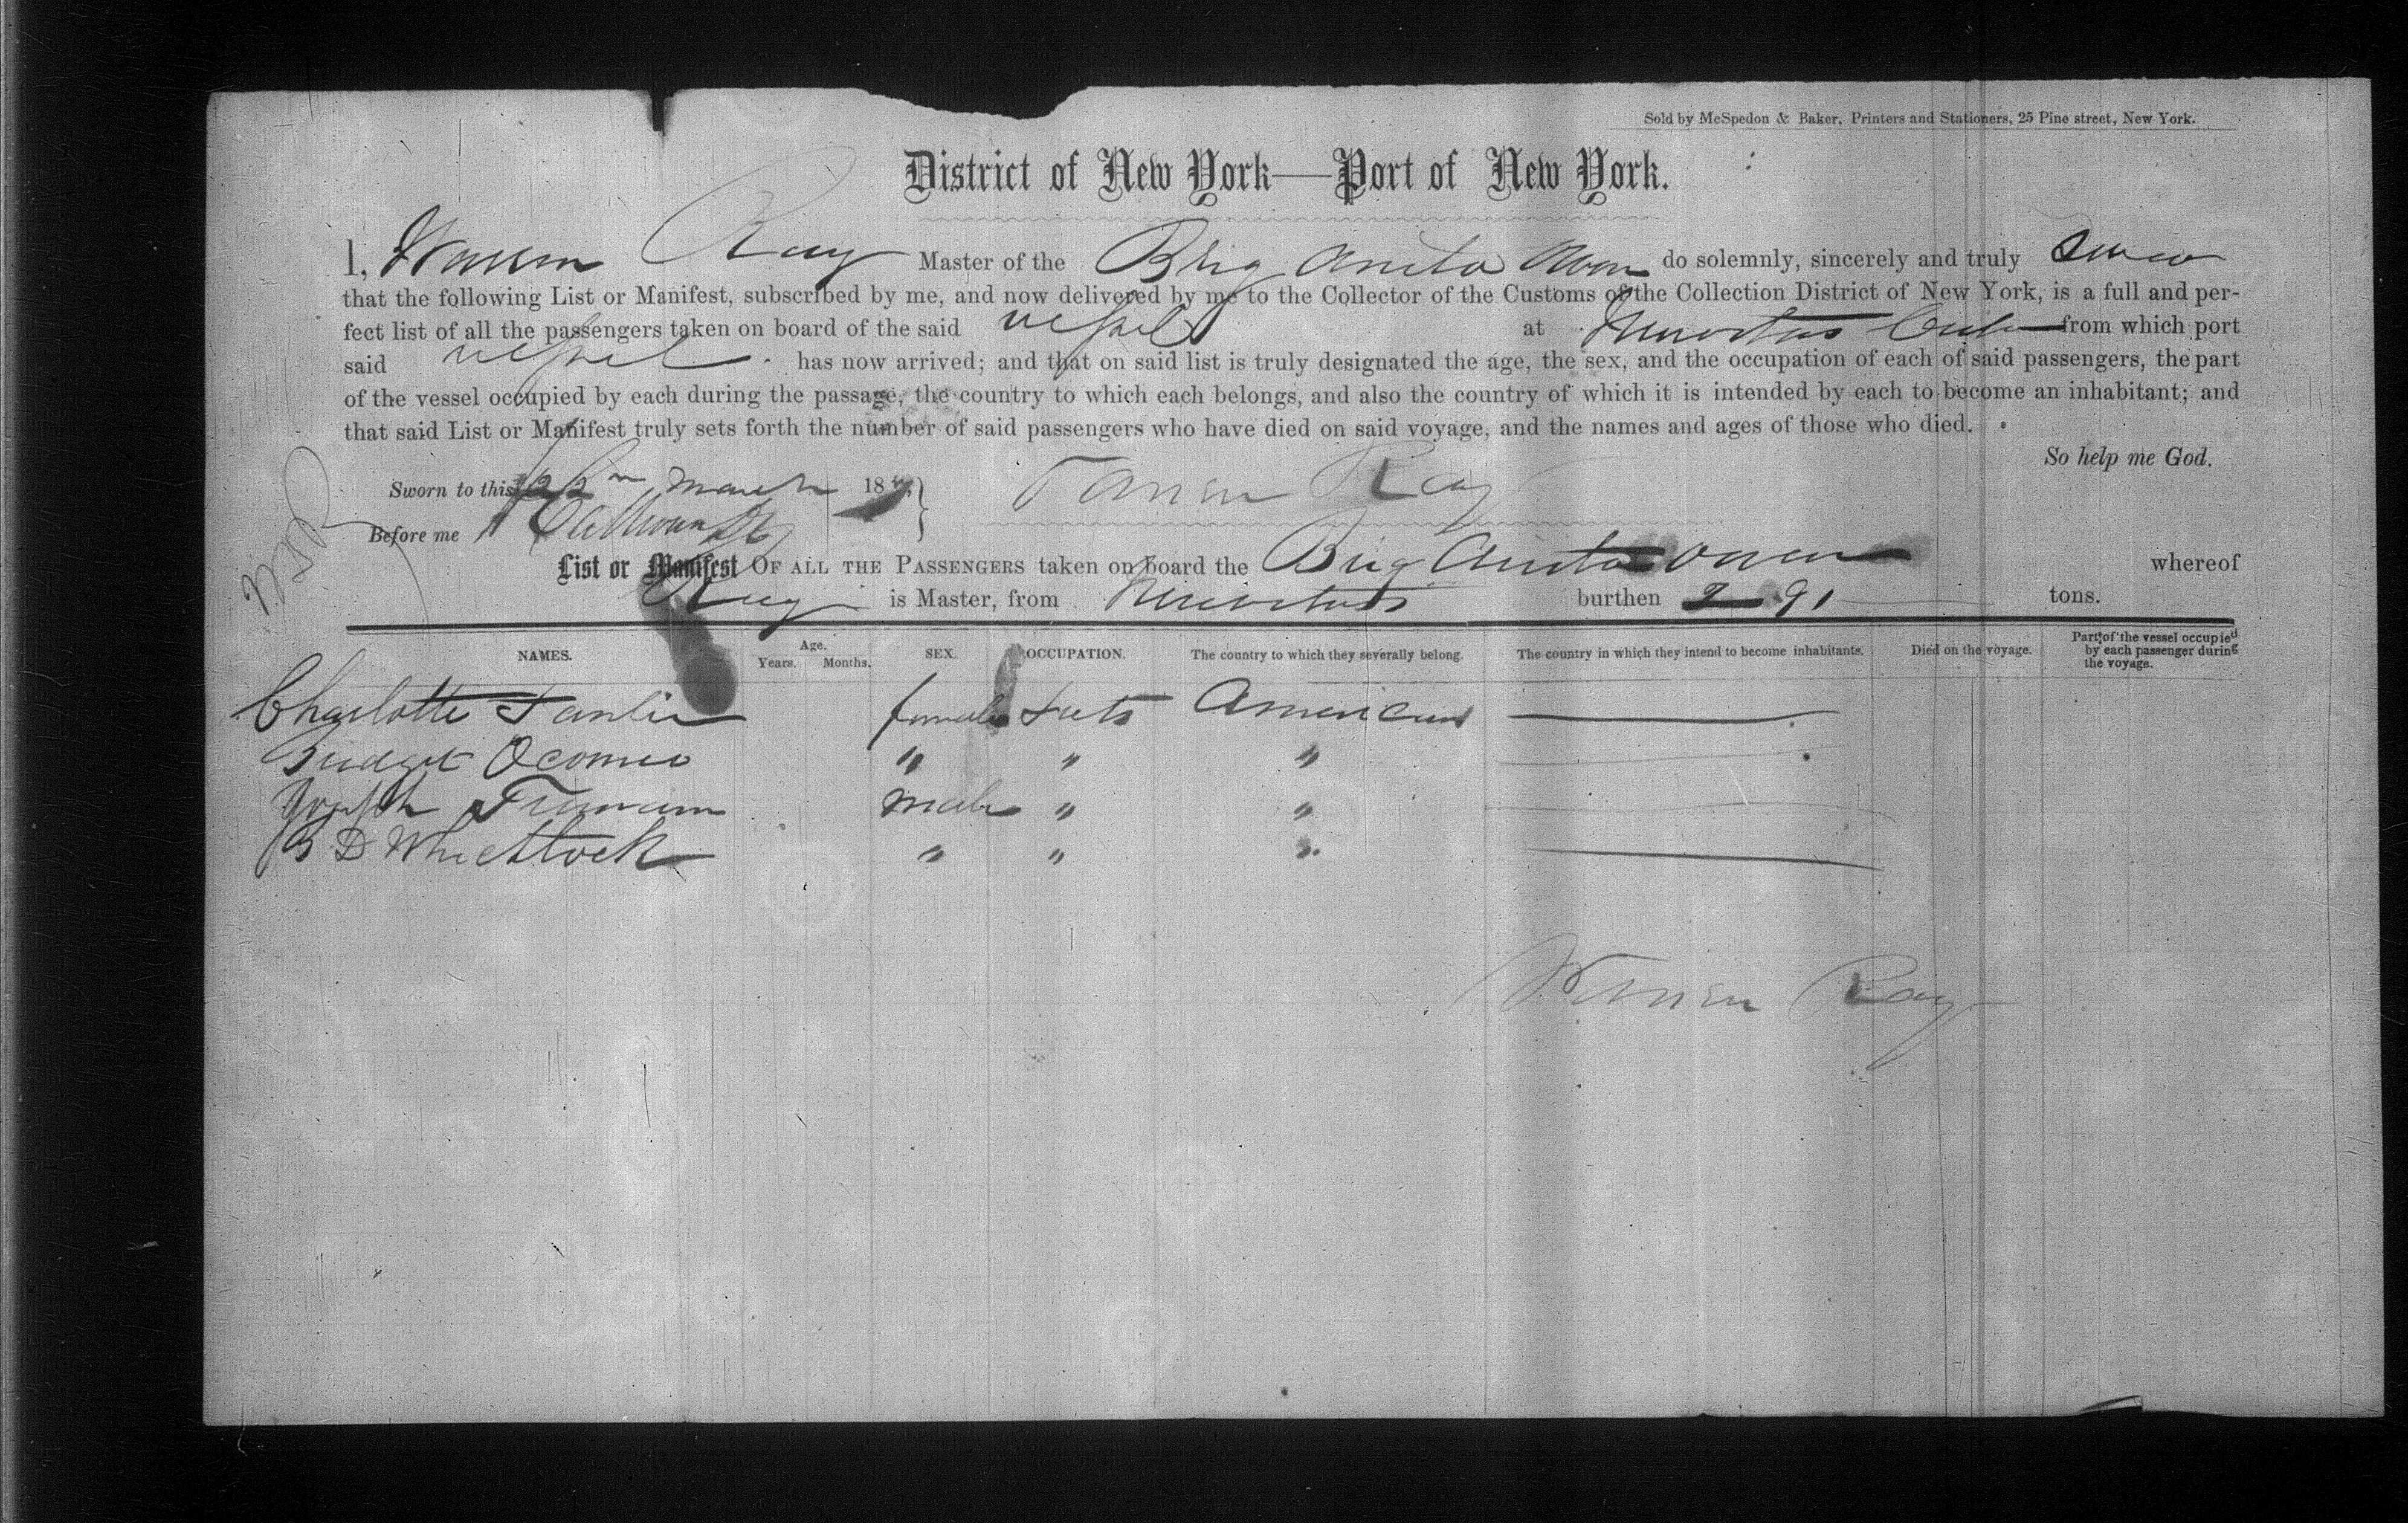 Sold by McSpedon & Baker, Printers and Stationers, 25 Pine street, New York.
District of New York—Port of New York.
I, Warren Ray Master of the Brig Anita Owen do solemnly, sincerely and truly swear
that the following List or Manifest, subscribed by me, and now delivered by me to the Collector of the Customs of the Collection District of New York, is a full and per-
fect list of all the passengers taken on board of the said vessel at Nuevitas Cuba from which port
said vessel has now arrived; and that on said list is truly designated the age, the sex, and the occupation of each of said passengers, the part
of the vessel occupied by each during the passage, the country to which each belongs, and also the country of which it is intended by each to become an inhabitant; and
that said List or Manifest truly sets forth the number of said passengers who have died on said voyage, and the names and ages of those who died.
So help me God.
Sworn to this 22 March 18 Warren Ray
Before me
List or Manifest OF ALL THE PASSENGERS taken on board the Brig Anita Owen whereof
Ray is Master, from Nuevitas burthen 291 tons.
NAMES. Age. Years. Months. SEX. OCCUPATION. The country to which they severally belong. The country in which they intend to become inhabitants. Died on the voyage. Part of the vessel occupied by each passenger during the voyage.
Charlotte female American
Bridget " " "
Joseph male " "
D Wheelock " " "
Warren Ray